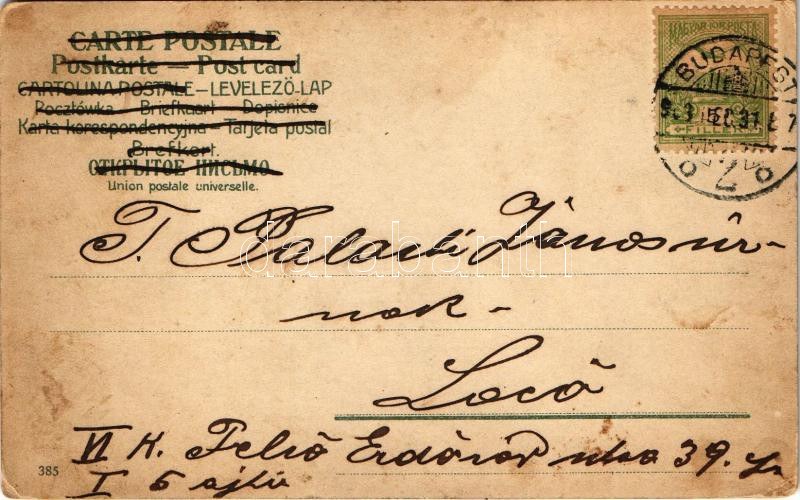 CARTE POSTALE
Postkarte – Post card
CARTOLINA POSTALE – LEVELEZŐ-LAP
Pocztówka – Briefkaart – Dopisnice
Karta korespondencyjna – Tarjeta postal
Brefkort.
ОТКРЫТОЕ ПИСЬМО
Union postale universelle.
MAGYAR KIR. POSTA
FILLÉR
BUDAPEST
T. János úr-
nak-
Locó
VI K. Felső Erdősor utca 39.
I 5 ajtó
385
darabanth